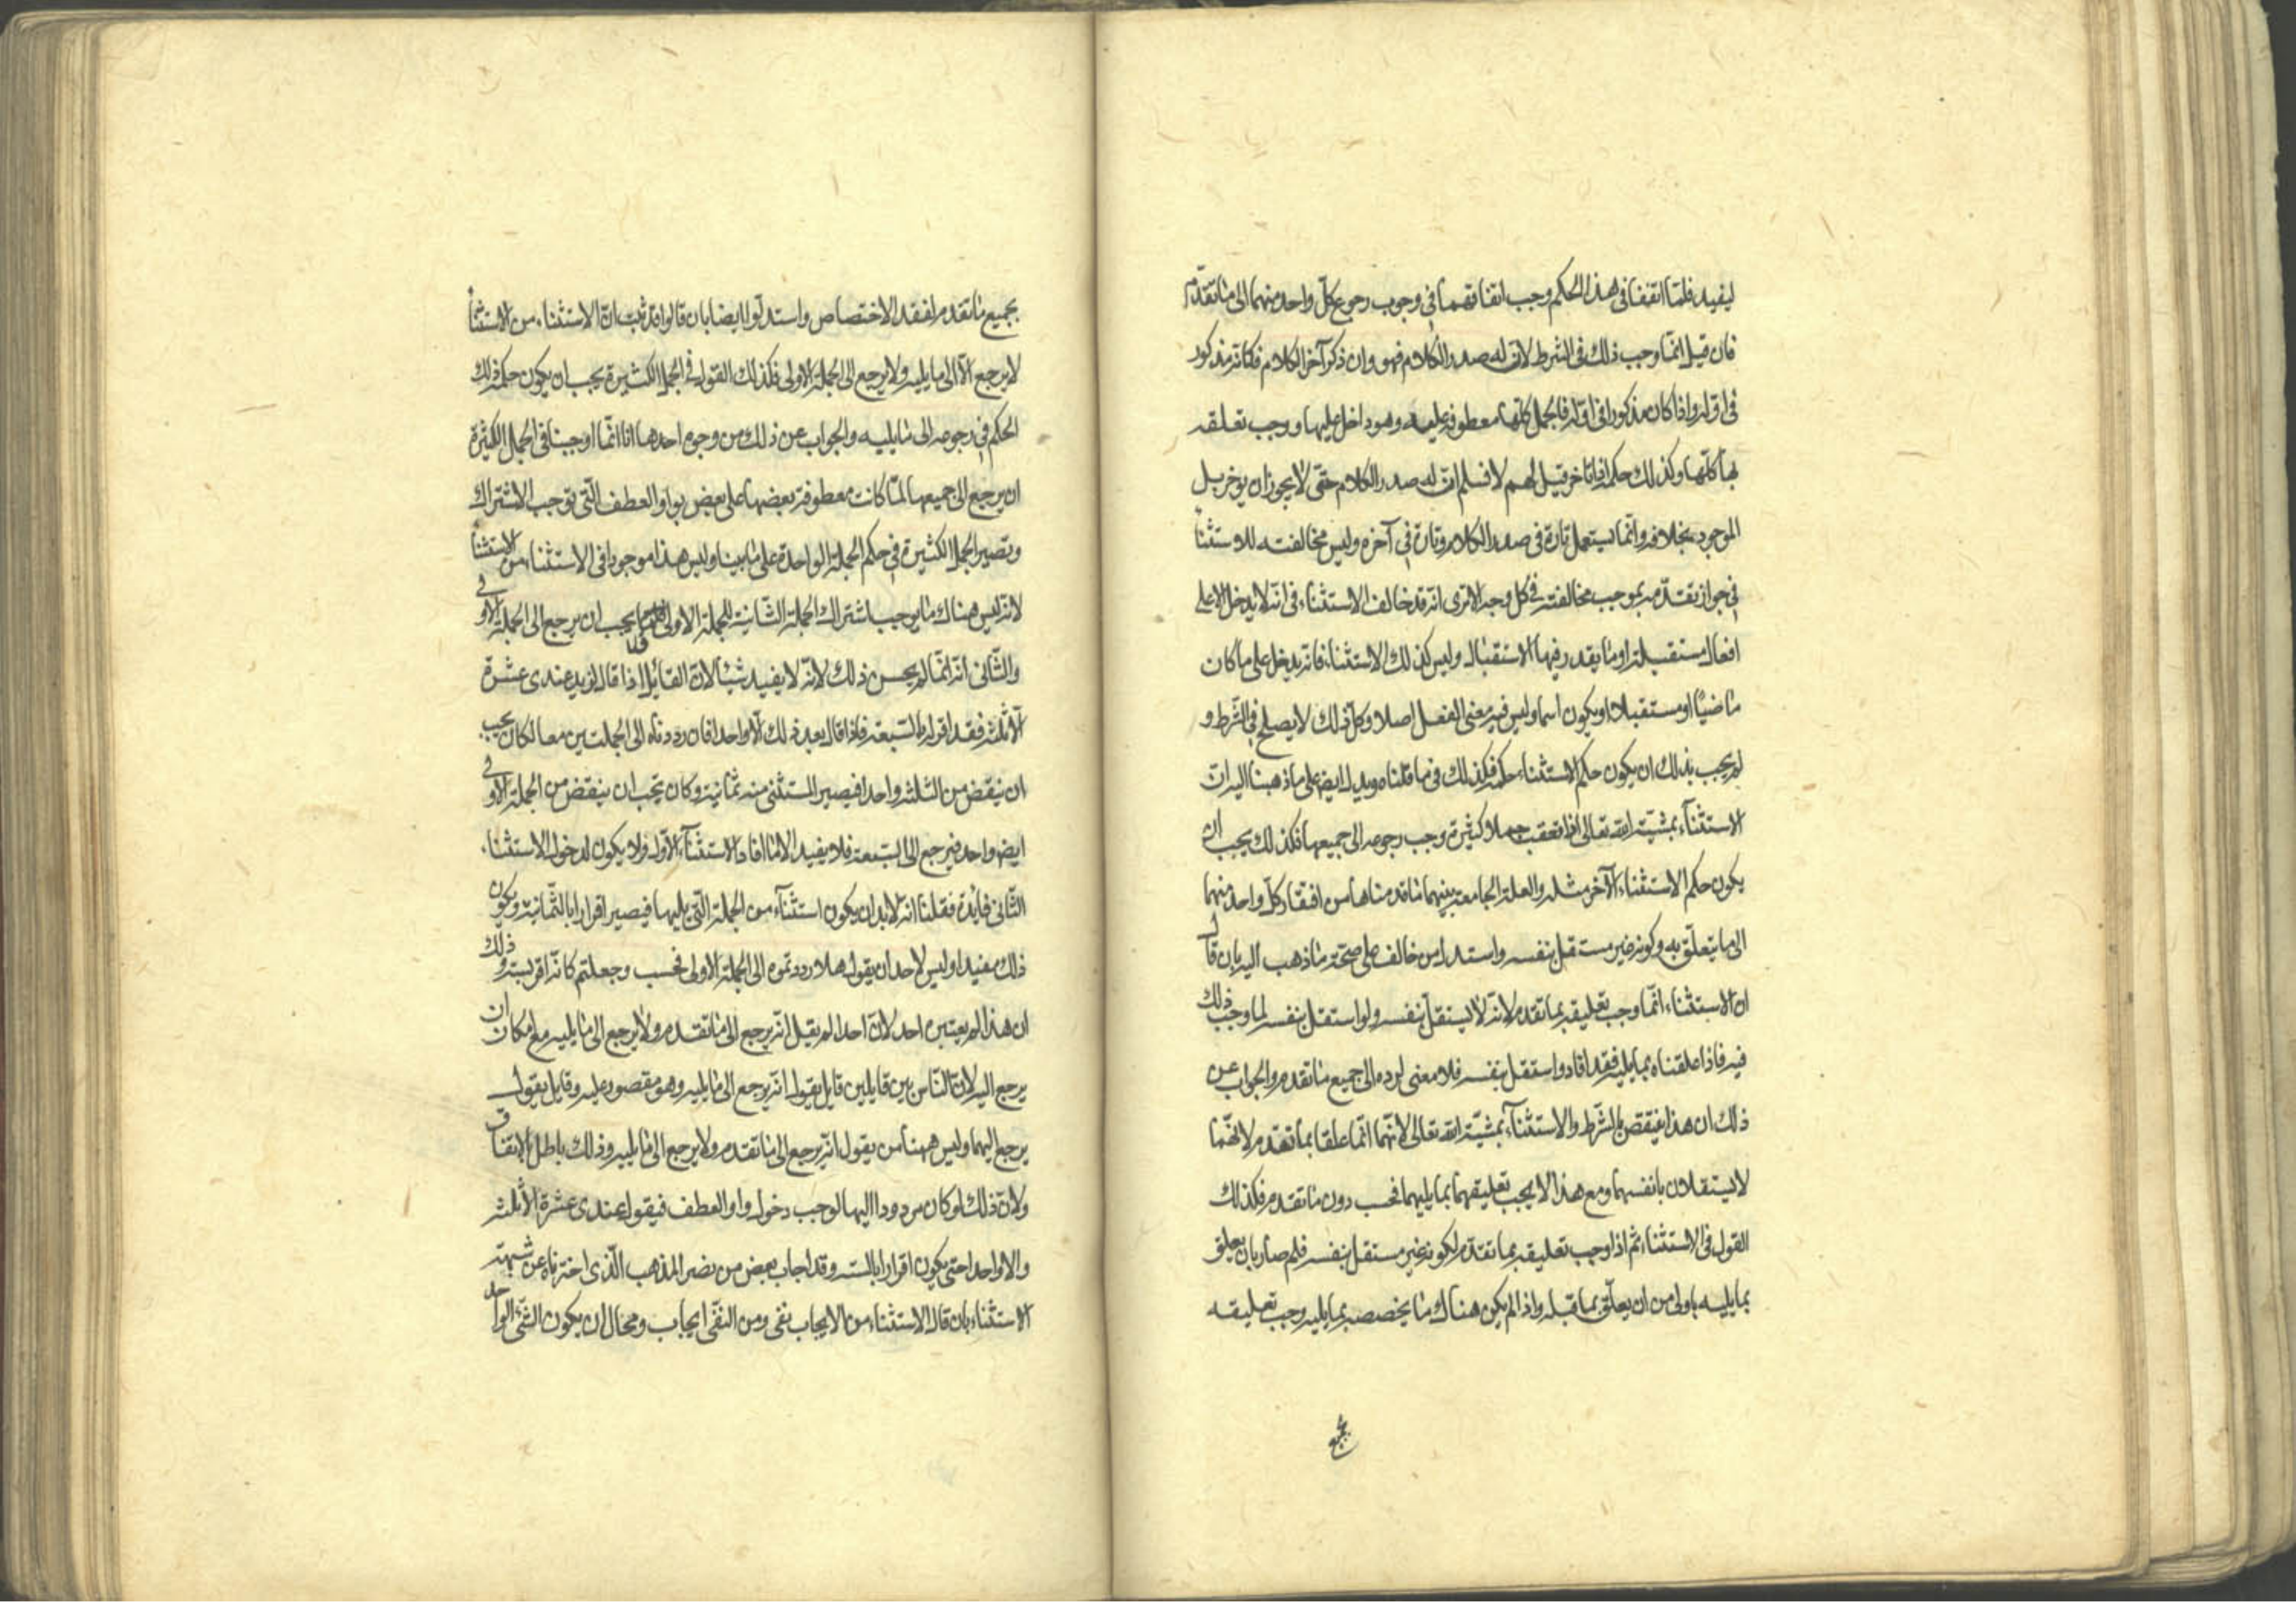 ليفيد فلمّا اتفقا في هذا الحكم وجب اتفاقهما في وجوب رجوع كلّ واحد منهما الى ما تقدّم
فان قيل انّما وجب ذلك في الشرط لانّ له صدر الكلام فهو وان ذكر آخر الكلام فكانّه مذكور
في اوّله واذا كان مذكورا في اوّله فالجمل كلّها معطوفة عليه وهو داخل عليها ووجب تعلقه
بها كلّها وكذلك حكمه اذا تاخر قيل لهم لا نسلم انّ له صدر الكلام حتّى لا يجوز ان يوخر بل
الموجود بخلافه وانّما يستعمل تارة في صدر الكلام وتارة في آخره وليس مخالفته للاستثناء
في جواز تقدّمه بموجب مخالفته في كل وجه الا ترى انّه قد خالف الاستثناء في انّه لا يدخل الا على
افعال مستقبلة او ما يقدر فيها الاستقبال وليس كذلك الاستثناء فانّه يدخل على ما كان
ماضيًا او مستقبلا او يكون اسما وليس فيه معنى الفعل اصلا وكل ذلك لا يصلح في الشرط و
لم يجب بذلك ان يكون حكم الاستثناء حكمه فكذلك في ما قلناه ويدل ايضا على ما ذهبنا اليه انّ
الاستثناء بمشيّة الله تعالى اذا تعقب جملا كثيرة وجب رجوعه الى جميعها فكذلك يجب ان
يكون حكم الاستثناء الآخر مثله والعلة الجامعة بينهما ما قدمناها من افتقار كلّ واحد منهما
الى ما يتعلّق به وكونه غير مستقل بنفسه واستدل من خالف على صحّة ما ذهب اليه بان قال
ان الاستثناء انّما وجب تعليقه بما تقدم لانّه لا يستقلّ بنفسه ولو استقل بنفسه لما وجب ذلك
فيه فاذا علقناه بما يليه فقد افاد واستقل بنفسه فلا معنى لرده الى جميع ما تقدم والجواب عن
ذلك ان هذا ينقض بالشّرط والاستثناء بمشيّة الله تعالى لانّهما انّما علقا بما تقدّم لانّهما
لا يستقلان بانفسهما ومع هذا لا يجب تعليقهما بما يليهما فحسب دون ما تقدم فكذلك
القول في الاستثناء ثم اذا وجب تعليقه بما تقدّم لكونه غير مستقل بنفسه فلم صار بان يعلق
بما يليه باولى من ان يعلّق بما قبله واذا لم يكن هناك ما يخصصه بما يليه وجب تعليقه
بجميع
بجميع ما تقدم لفقد الاختصاص واستدلّوا ايضا بان قالوا قد ثبت انّ الاستثناء من الاستثناء
لا يرجع الّا الى ما يليه ولا يرجع الى الجملة الاولى فكذلك القول في الجمل الكثيرة يجب ان يكون حكمه ذلك
الحكم في رجوعه الى ما يليه والجواب عن ذلك من وجوه احدها انا انّما اوجبنا في الجمل الكثيرة
ان يرجع الى جميعها لمّا كانت معطوفة بعضها على بعض بواو العطف الّتي توجب الاشتراك
وتصير الجمل الكثيرة في حكم الجملة الواحدة على ما بينا وليس هذا موجودا في الاستثناء من الاستثناء
لانّه ليس هناك ما يوجب اشتراك الجملة الثّانية للجملة الاولى يجب ان يرجع الى الجملة الاولى
والثّاني انّه انّما لم يحسن ذلك لانّه لا يفيد شيئا لانّ القائل اذا قال لزيد عندي عشرة
الّا ثلثه فقد اقرار بالسّبعة فاذا قال بعد ذلك الّا واحدا فان رددناه الى الجملتين معا لكان يجب
ان ينقض من الثلثه واحدا فيصير المستثنى منه ثمانية وكان يجب ان ينقض من الجملة الاولى
ايضا واحد فيرجع الى السّبعة فلا يفيد الا ما افاد الاستثناء الاوّل ولا يكون لدخول الاستثناء
الثّاني فايدة فقلنا انّه لا بد ان يكون استثناء من الجملة الّتي يليها فيصير اقرارا بالثّمانية ويكون
ذلك مفيدا وليس لاحد ان يقول هلا رددتموه الى الجملة الاولى فحسب وجعلتم كانّه اقر بستّة وذلك
ان هذا لم يعتبره احد لانّ احدا لم يقيل انّه يرجع الى ما تقدم ولا يرجع الى ما يليه مع امكان ان
يرجع اليه لانّ النّاس بين قايلين قايل يقول انّه يرجع الى ما يليه وهو مقصور عليه وقايل يقول
يرجع اليهما وليس ههنا من يقول انّه يرجع الى ما تقدم ولا يرجع الى ما يليه وذلك باطل بالاتفاق
ولانّ ذلك لو كان مردودا اليها لوجب دخول واو العطف فيقول عندي عشرة الا ثلثه
والا واحدا حتى يكون اقرارا بالسته وقد اجاب بعض من نصر المذهب الّذي اخترناه عن شبهة
الاستثناء بان قال الاستثناء من الايجاب نفي ومن النّفي ايجاب ومحال ان يكون الشّئ الواحد